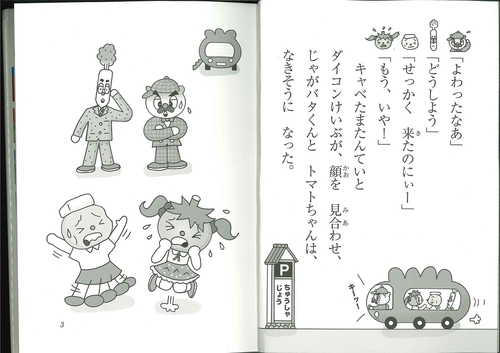 「よわったなあ」
「どうしよう」
「せっかく 来たのにぃー」
き
「もう、いや！」
キャベたまたんていと
ダイコンけいぶが、顔を 見合わせ、
かお
みあ
じゃがバタくんと トマトちゃんは、
なきそうに なった。
P
ちゅうしゃ
じょう
キーッ！
3